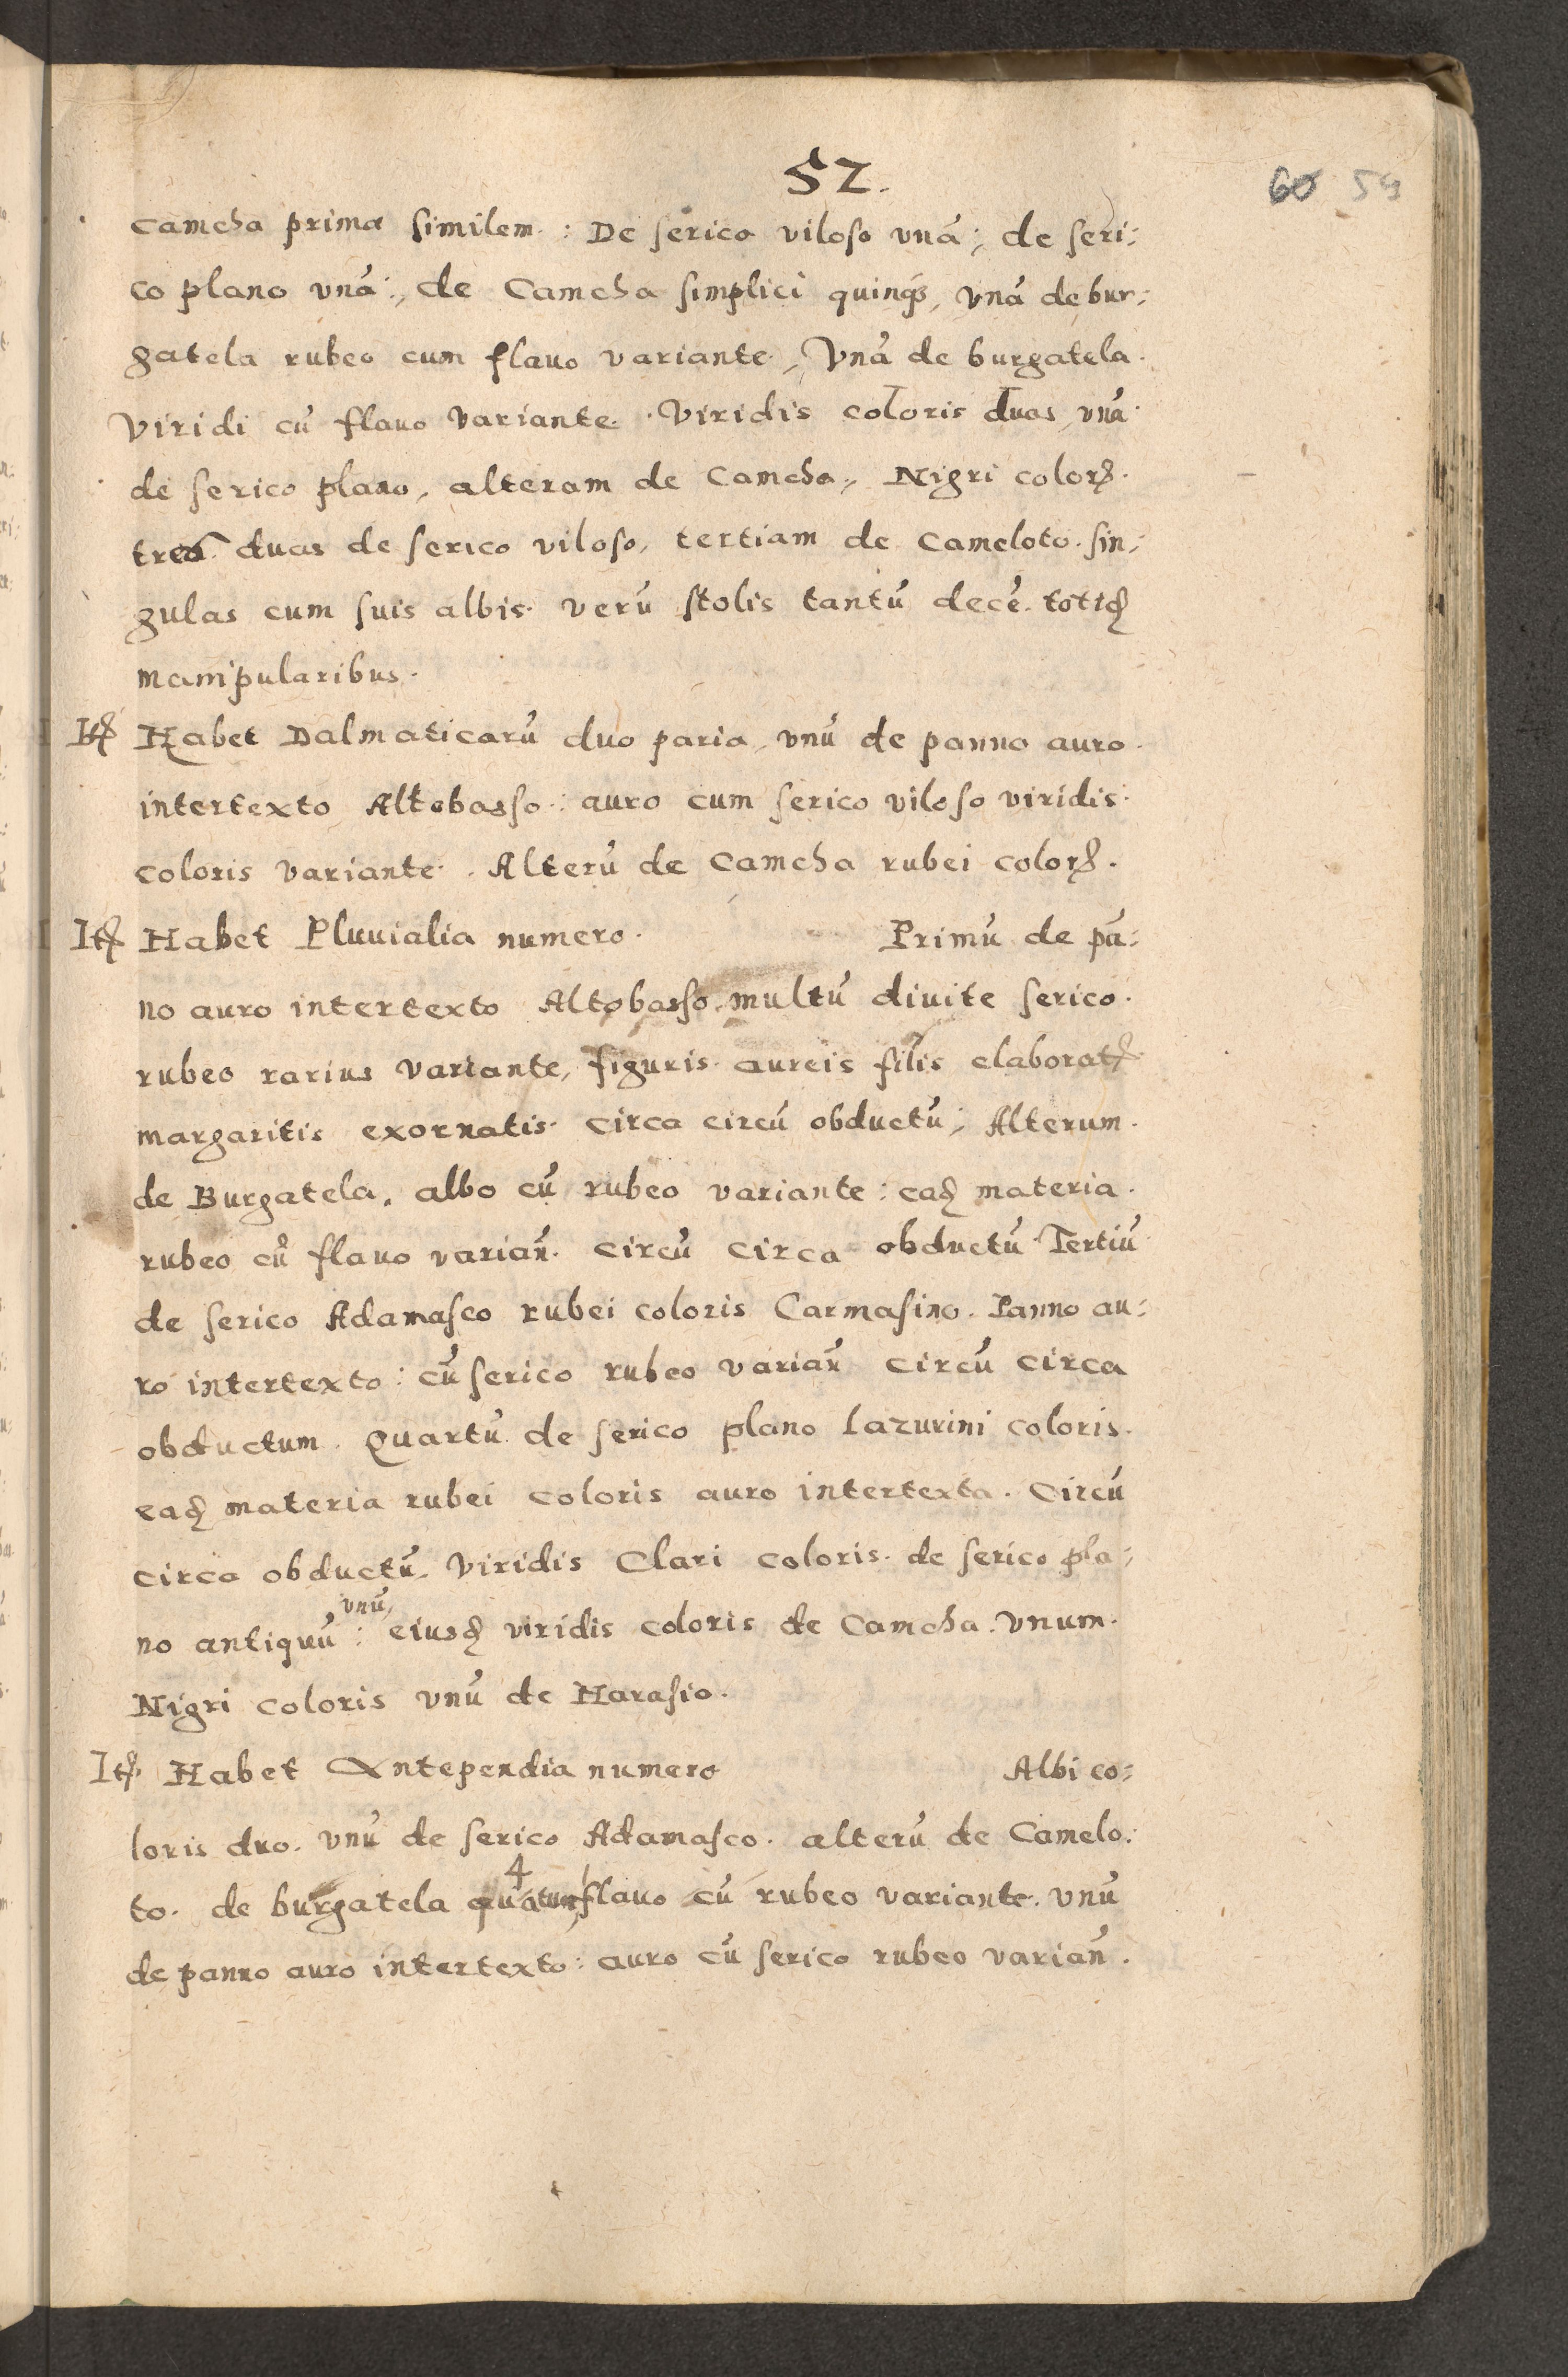 52.
60 59
Camcha prima similem : De serico viloso vnā; de seri:
co plano vnā, de Camcha simplici quinqȝ, vnā de bur:
gatela rubeo cum flauo variante, Vnā de burgatela
Viridi cū flauo Variante. Viridis coloris duas, vnā
de serico plano, alteram de Camcha, Nigri colorꝭ.
tres duas de serico viloso, tertiam de Cameloto. sin:
gulas cum suis albis. verū stolis tantū decē. totiꝺ
manipularibus.
Itꝭ Habet Dalmaticarū duo paria, vnū de panno auro
intertexto Altobasso : auro cum serico viloso viridis
coloris variante. Alterū de Camcha rubei colorꝭ.
Itꝭ Habet Pluuialia numero. Primū de pā:
no auro intertexto Altobasso. multū diuite serico.
rubeo rarius variante, figuris aureis filis elaboratꝭ
margaritis exornatis circa circū obductū; Alterum
de Burgatela, albo cū rubeo variante : eaꝺ materia
rubeo cū flauo varian̄. circū circa obductū Tertiū
de serico Adamasco rubei coloris Carmasino. Panno au:
ro intertexto : cū serico rubeo varian̄ circū circa
obductum. Quartū de serico plano Lazurini coloris.
eaꝺ materia rubei coloris auro intertexta. Circū
circa obductū. Viridis Clari coloris. de serico pla:
vnū,
no antiquū : eiusꝺ viridis coloris de Camcha. vnum.
Nigri coloris vnū de Harasio.
Itꝭ Habet Antependia numero Albi co:
loris duo. vnū de serico Adamasco. alterū de Camelo:
4
to. de burgatela quatuor flauo cū rubeo variante. vnū
de panno auro intertexto : auro cū serico rubeo varian̄.